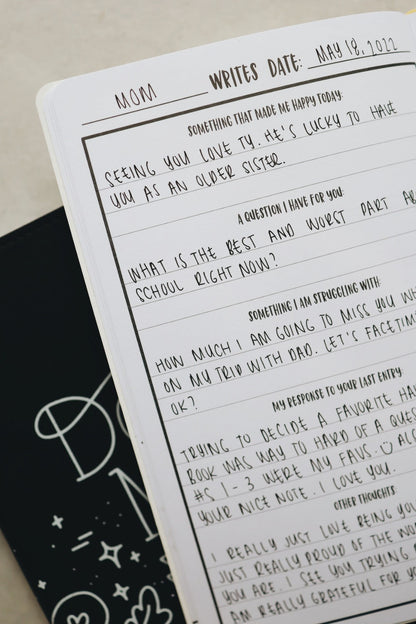 MOM WRITES DATE: MAY 18, 2022
SOMETHING THAT MADE ME HAPPY TODAY:
SEEING YOU LOVE TY. HE'S LUCKY TO HAVE
YOU AS AN OLDER SISTER.
A QUESTION I HAVE FOR YOU:
WHAT IS THE BEST AND WORST PART
SCHOOL RIGHT NOW?
SOMETHING I AM STRUGGLING WITH:
HOW MUCH I AM GOING TO MISS YOU
ON MY TRIP WITH DAD. LET'S
OK?
MY RESPONSE TO YOUR LAST ENTRY:
TRYING TO DECIDE A FAVORITE
BOOK WAS WAY TO HARD OF A
#S 1-3 WERE MY FAVS.
YOUR NICE NOTE. I LOVE YOU.
OTHER THOUGHTS
I REALLY JUST LOVE BEING
JUST REALLY PROUD OF THE
YOU ARE. I SEE YOU TRYING
AM REALLY GRATEFUL FOR